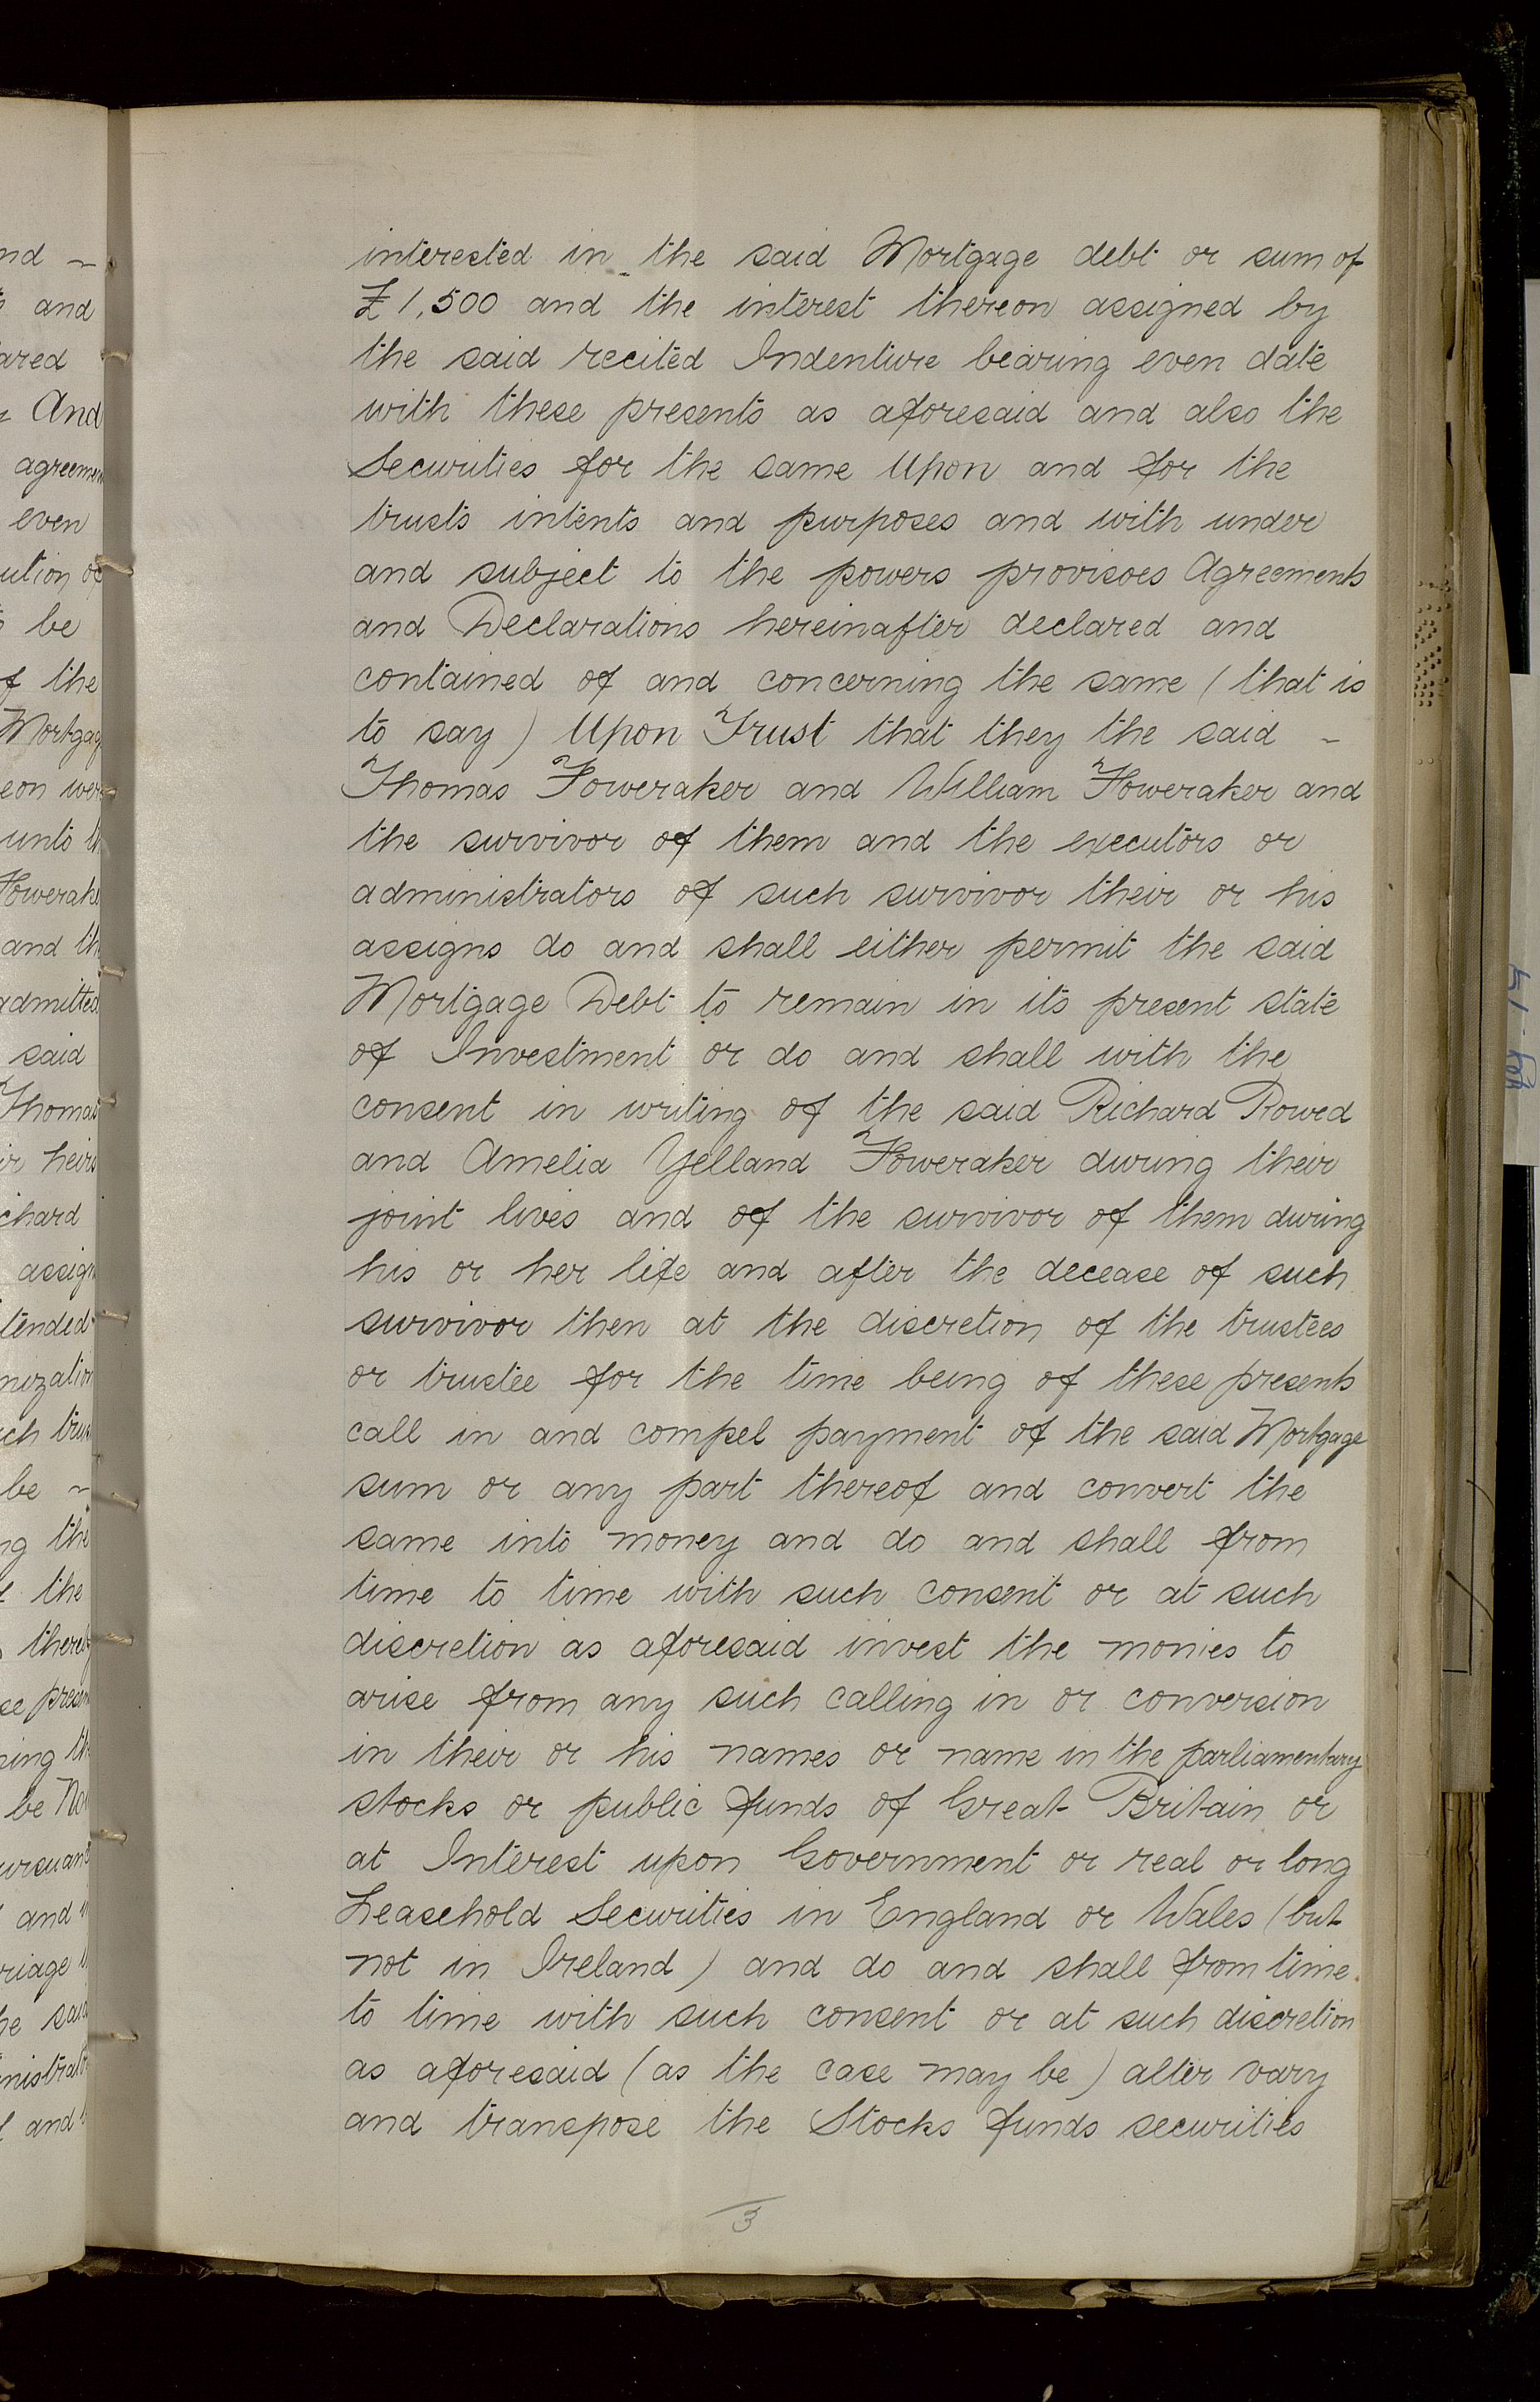 interested in the said Mortgage debt or sum of
£1,500 and the interest thereon assigned by
the said recited Indenture bearing even date
with these presents as aforesaid and also the
Securities for the same Upon and for the
trusts intents and purposes and with under
and subject to the powers provisoes Agreements
and Declarations hereinafter declared and
contained of and concerning the same (that is
to say) Upon Trust that they the said ~
Thomas Foweraker and William Foweraker and
the survivor of them and the executors or
administrators of such survivor their or his
assigns do and shall either permit the said
Mortgage Debt to remain in its present state
of Investment or do and shall with the
consent in writing of the said Richard Rowed
and Amelia Yelland Foweraker during their
joint lives and of the survivor of them during
his or her life and after the decease of such
survivor then at the discretion of the trustees
or trustee for the time being of these presents
call in and compel payment of the said Mortgage
sum or any part thereof and convert the
same into money and do and shall from
time to time with such consent or at such
discretion as aforesaid invest the monies to
arise from any such calling in or conversion
in their or his names or name in the parliamentary
stocks or public funds of Great Britain or
at Interest upon Government or real or long
Leasehold Securities in England or Wales (but
not in Ireland) and do and shall from time
to time with such consent or at such discretion
as aforesaid (as the case may be) alter vary
and transpose the Stocks funds securities
3